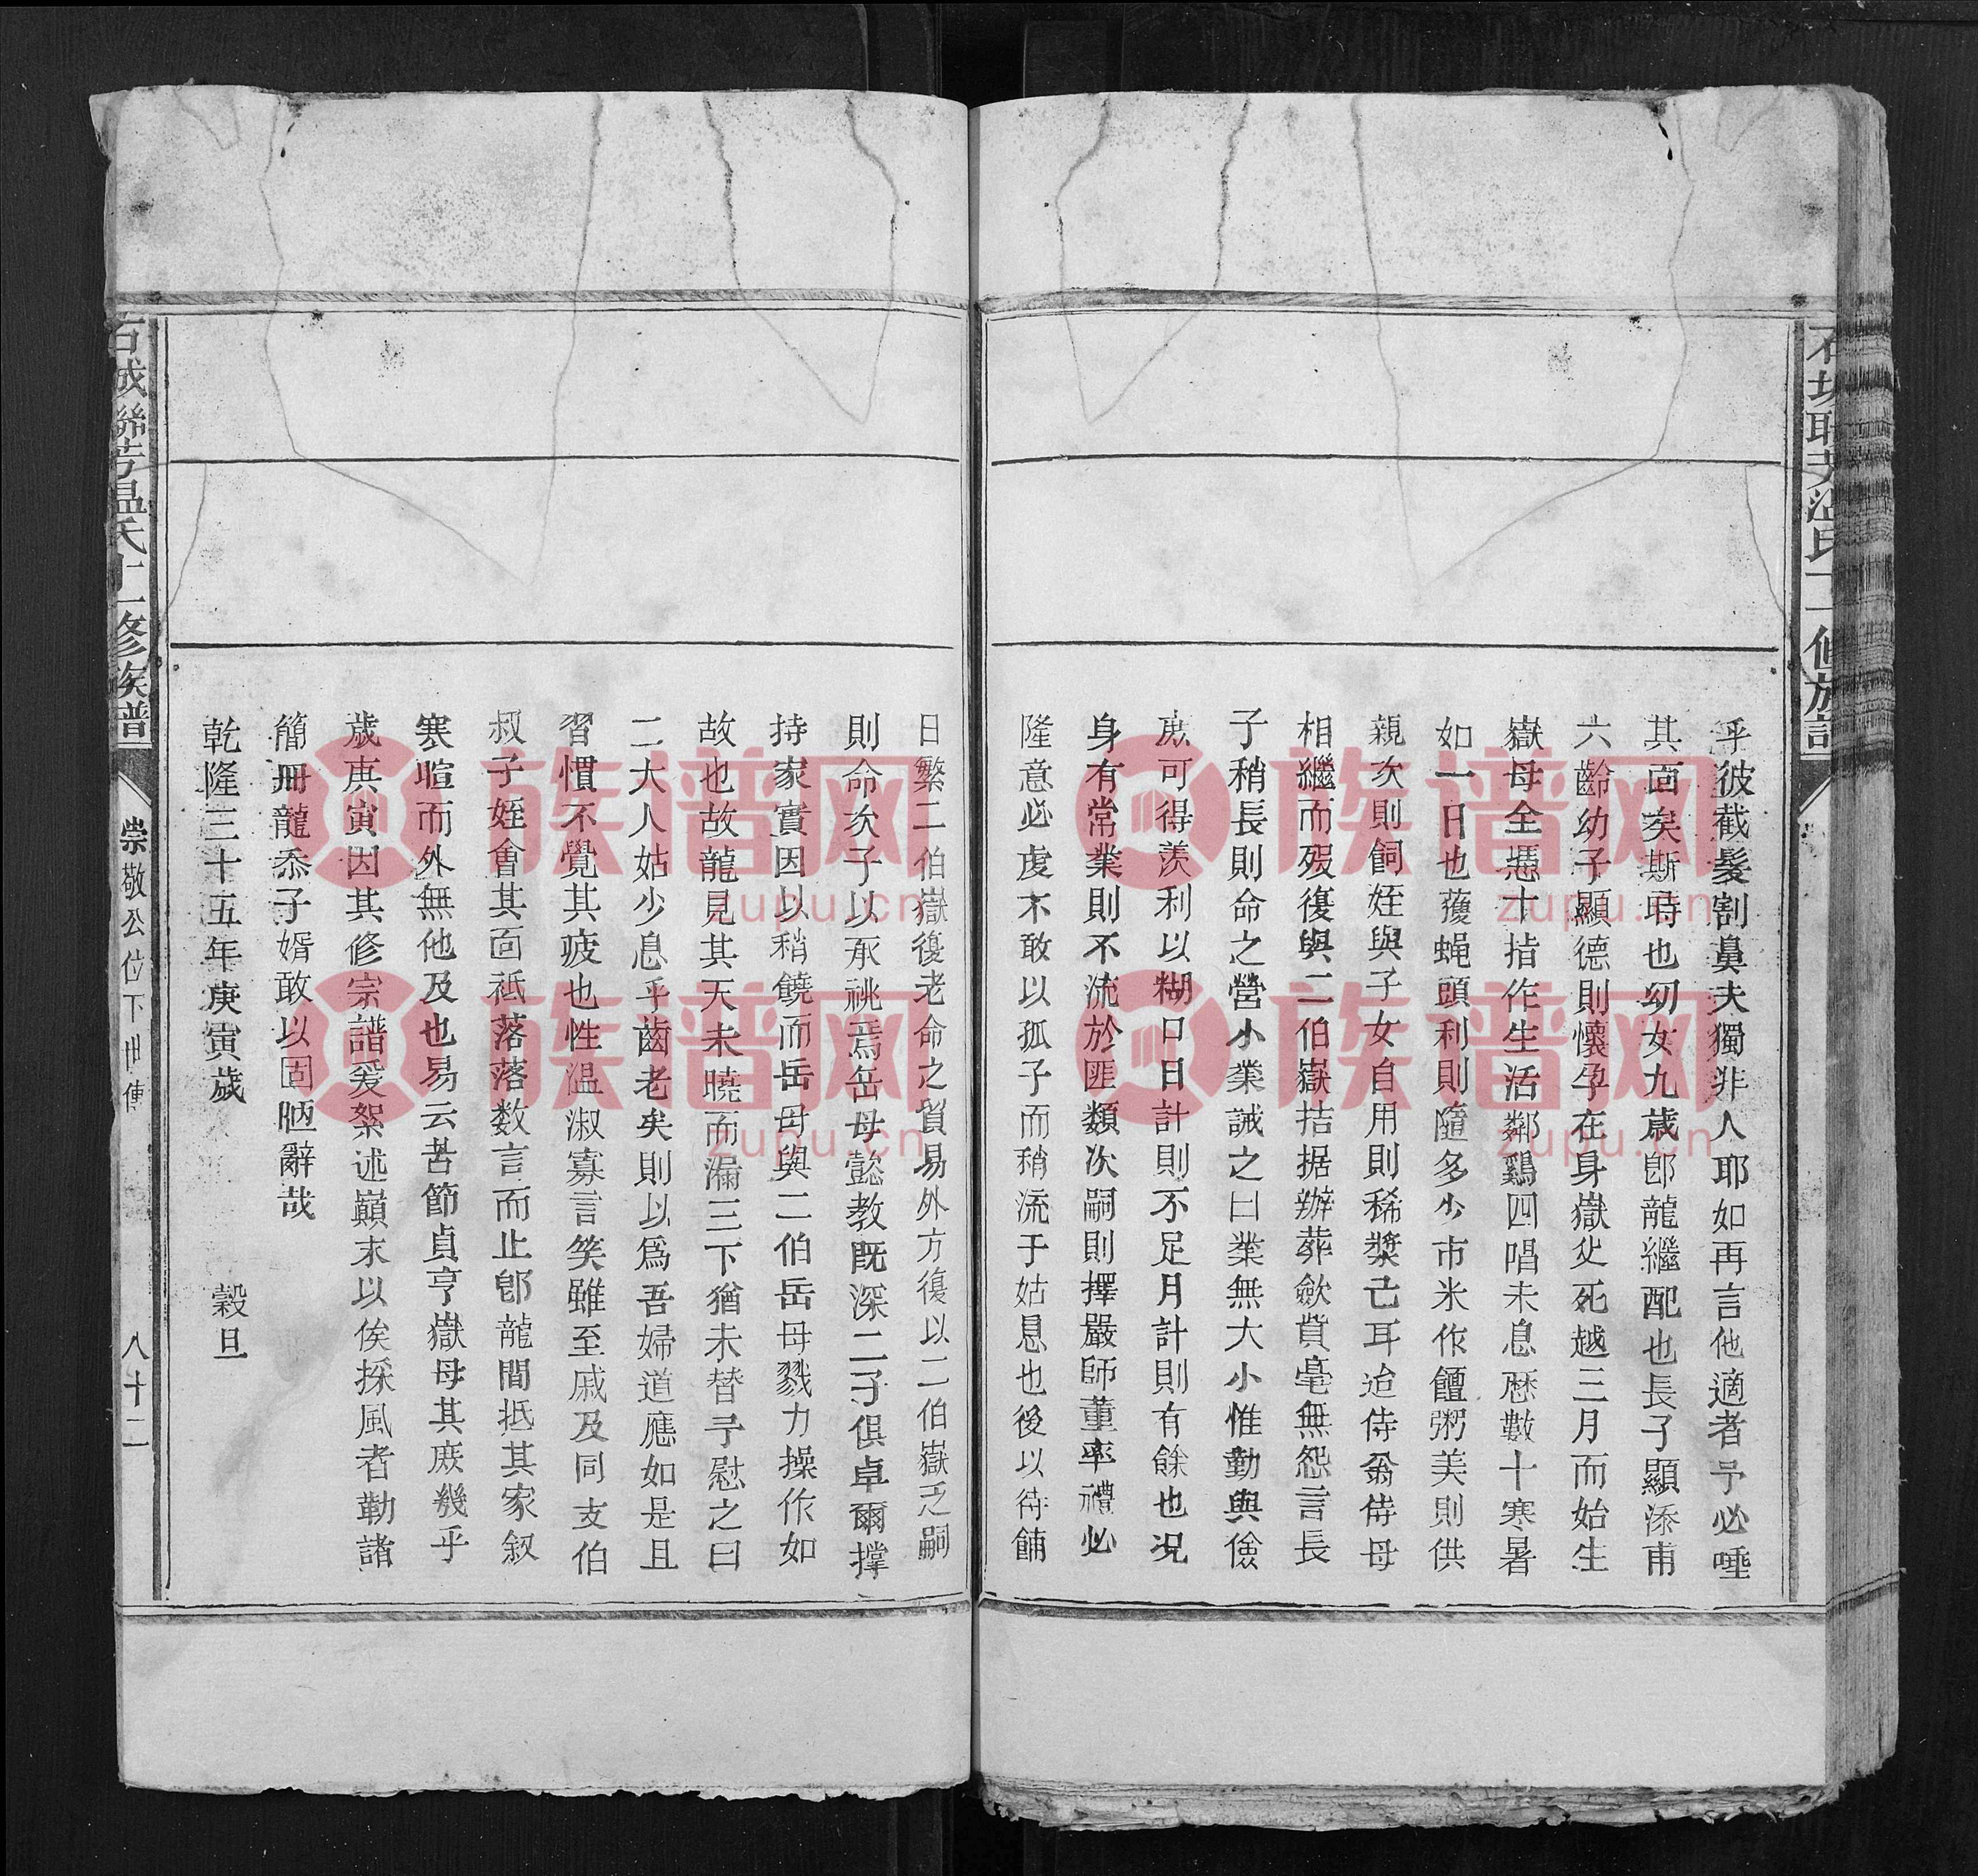 乎彼截髮割鼻夫獨非人耶如再言他適者予必唾
其面矣斯時也幼女九歲卽龍繼配也長子顯添甫
六齡幼子顯德則懷孕在身嶽父死越三月而始生
嶽母全憑十指作生活鄰鷄四唱未息歷數十寒暑
如一日也獲蝇頭利則隨多少市米作饘粥美則供
親次則飼姪與子女自用則稀漿已耳迨侍翁侍母
相繼而歿復與二伯嶽拮据辦葬歛貲毫無怨言長
子稍長則命之營小業誡之曰業無大小惟勤與儉
庶可得羨利以糊口日計則不足月計則有餘也况
身有常業則不流於匪類次嗣則擇嚴師董率禮必
隆意必虔不敢以孤子而稍流于姑息也後以待餔
日繁二伯嶽復老命之貿易外方復以二伯嶽乏嗣
則命次子以承祧焉岳母懿教既深二子俱卓爾撐
持家實因以稍饒而岳母與二伯岳母戮力操作如
故也故龍見其天未曉而漏三下猶未替予慰之曰
二大人姑少息乎齒老矣則以為吾婦道應如是且
習慣不覺其疲也性溫淑寡言笑雖至戚及同支伯
叔子姪會其面祗落落数言而止卽龍間抵其家叙
寒暄而外無他及也易云苦節貞亨嶽母其庶幾乎
歲庚寅因其修宗譜爰絮述巔末以俟採風者勒諸
簡冊龍忝子婿敢以固陋辭哉
乾隆三十五年庚寅歲 穀旦
石城聯芳温氏十一修族譜
崇敬公位下世傳
八十二
族谱网
zupu.cn
族谱网
zupu.cn
族谱网
zupu.cn
族谱网
zupu.cn